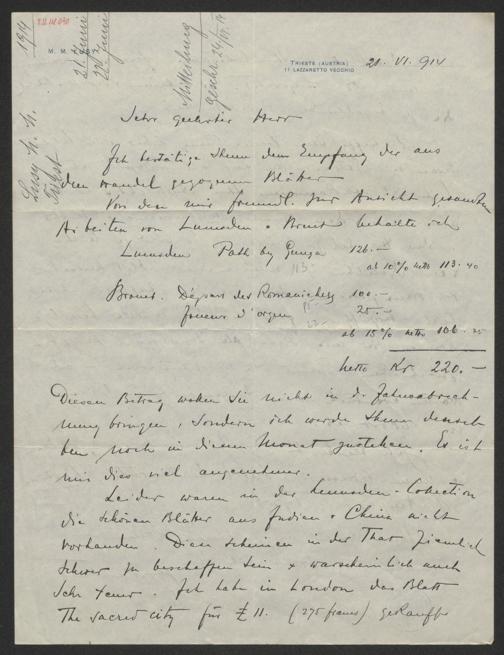 1914
M. M. Lusy
21. Juni
22. Juni
Mitteilung
geschr. 24/VI. 14
Lusy M. M.
Triest
TRIESTE (AUSTRIA)
11 LAZZARETTO VECCHIO
21. VI. 914
Sehr geehrter Herr
Ich bestätige Ihnen den Empfang der aus
dem Handel gezogenen Blätter
Von den mir freundl. zur Ansicht gesandten
Arbeiten von Lumsden & Brouet behalte ich
Lumsden Path by Ganga 126.—
113.
ab 10% netto 113.40
Brouet. Départ des Romanichels 100.—
Joueur d'orgue 25.—
ab 15% netto 106.25
netto Kr 220.—
Diesen Betrag wollen Sie nicht in d. Jahresabrech-
nung bringen, sondern ich werde Ihnen densel-
ben noch in diesem Monat zustellen. Es ist
mir dies viel angenehmer.
Leider waren in der Lumsden-Collection
die schönen Blätter aus Indien & China nicht
vorhanden. Diese scheinen in der That ziemlich
schwer zu beschaffen sein & warscheinlich auch
sehr teuer. Ich habe in London das Blatt
The sacred city für £ 11. (275 francs) gekauft